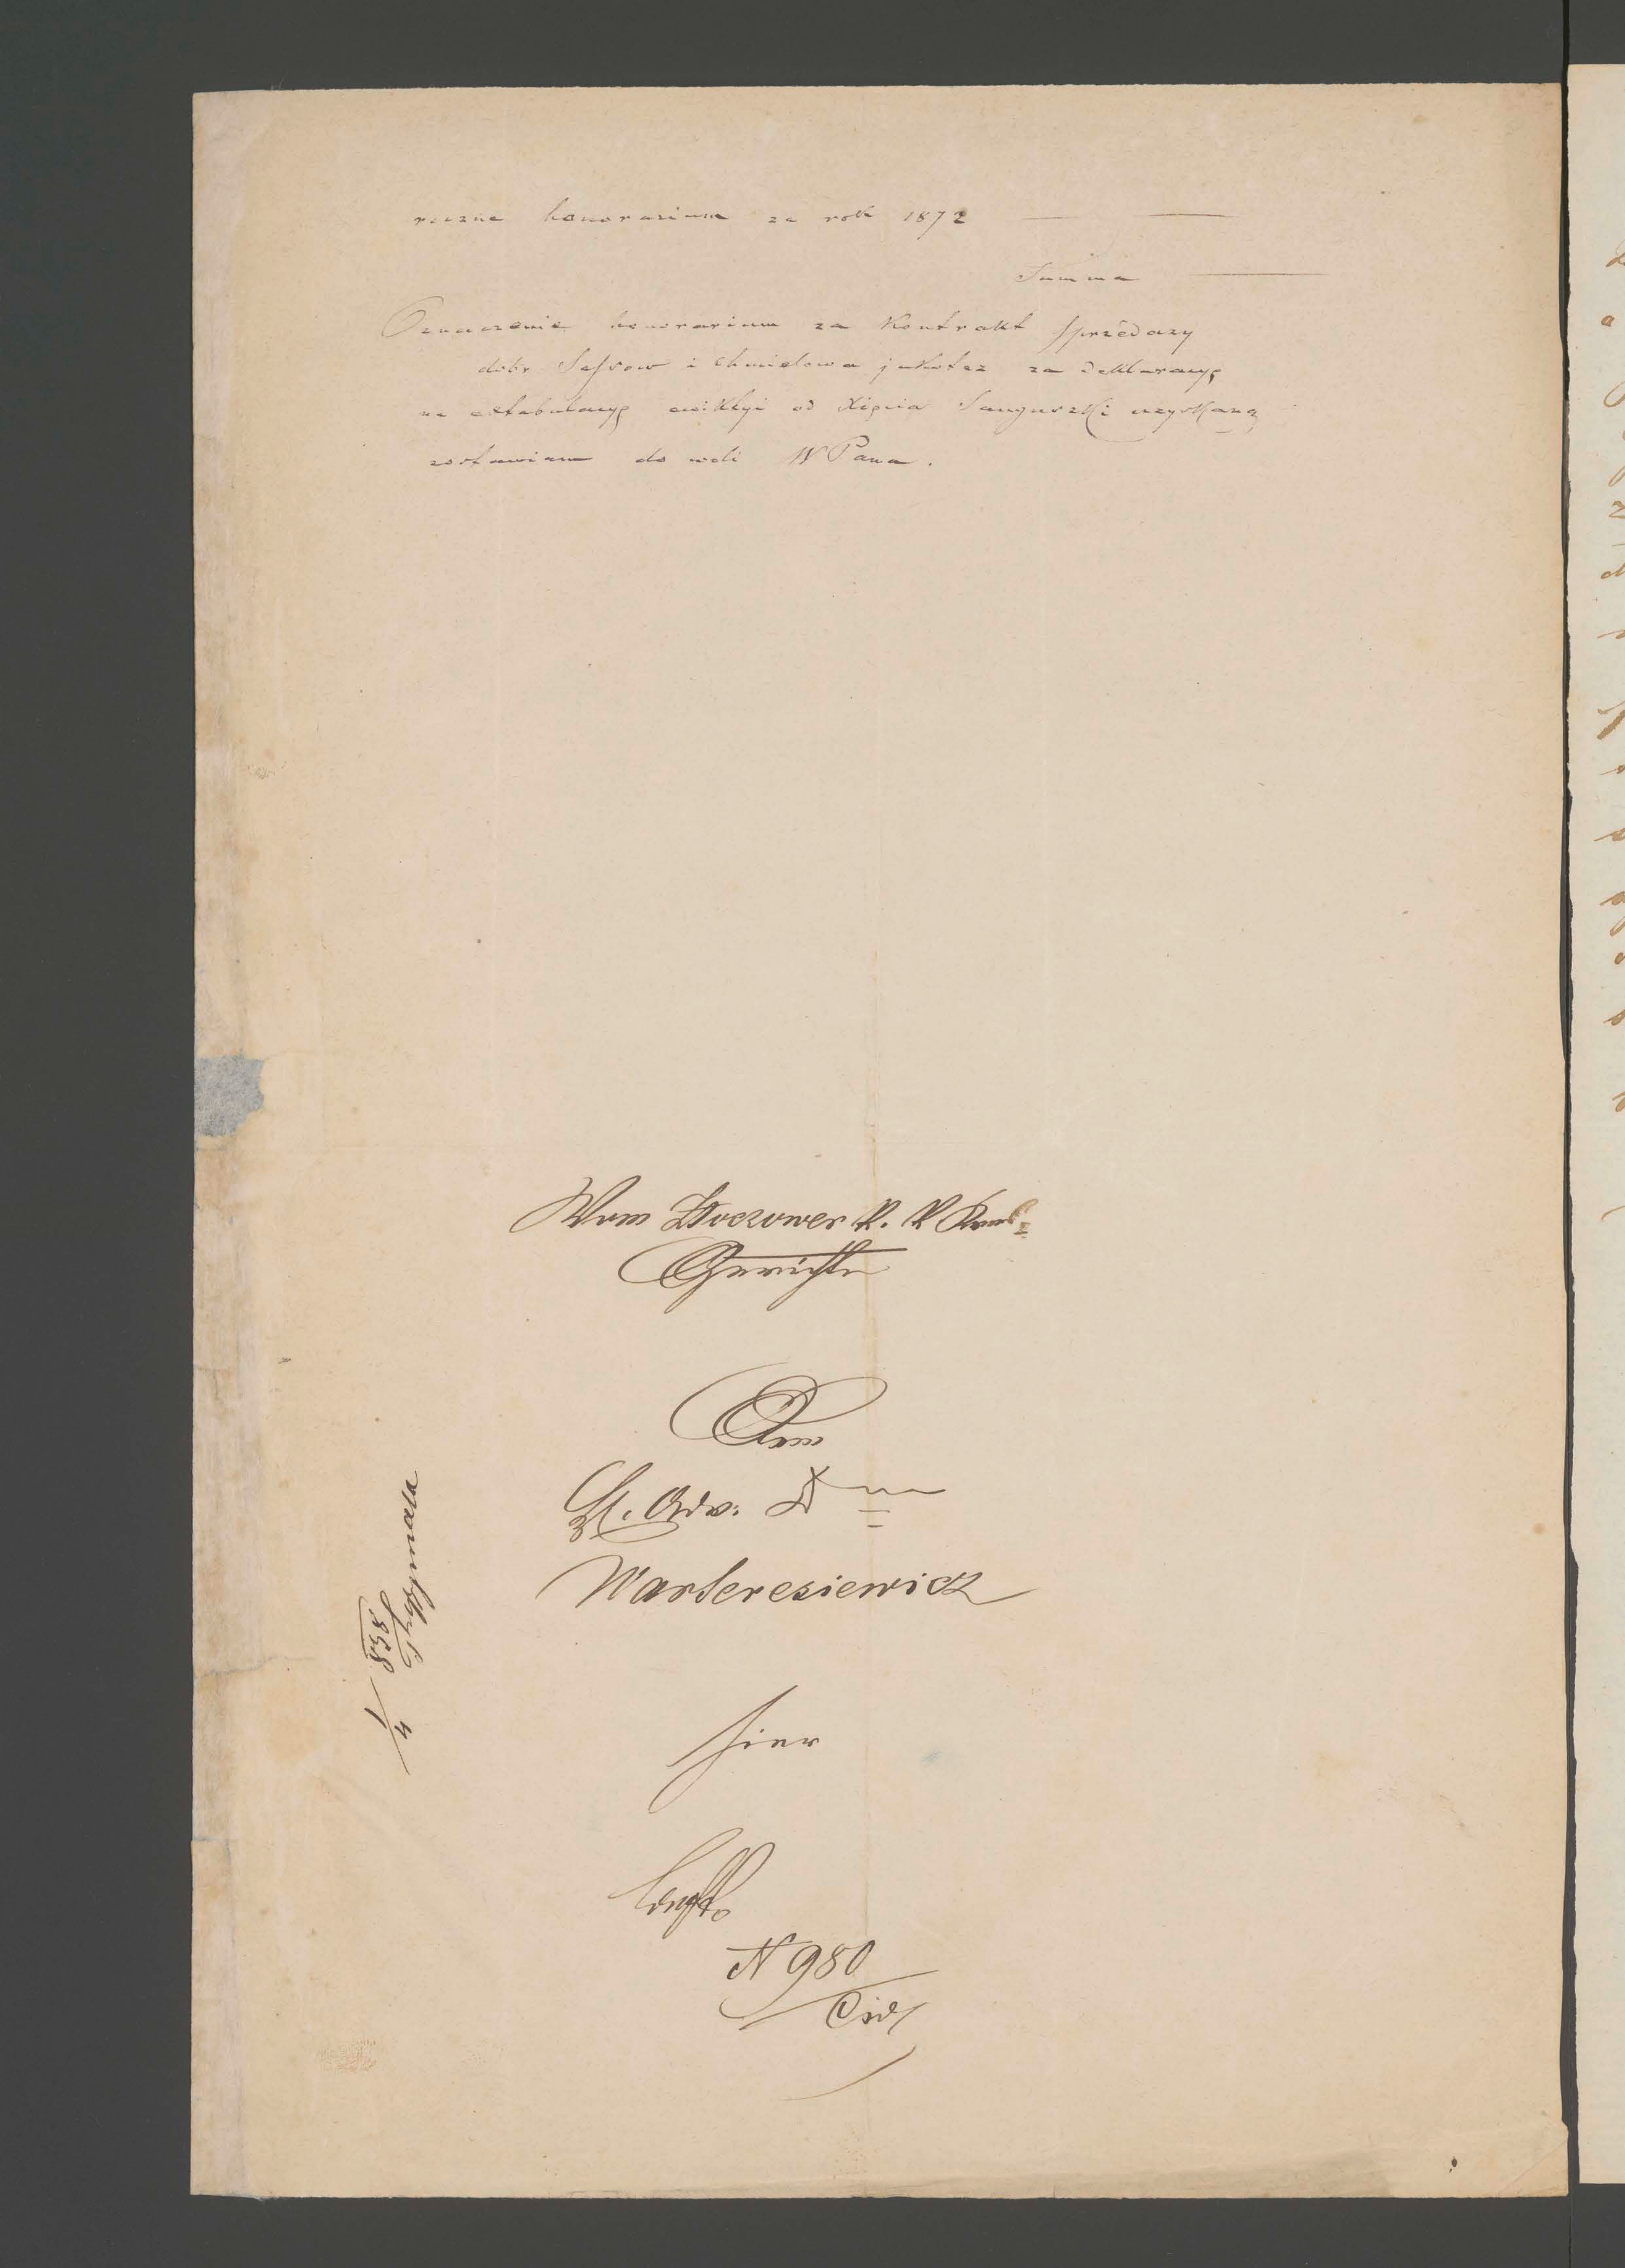 roczne honorarium za rok 1872 — —
Summa —
Oznaczenie honorarium za Kontrakt sprzedazy
dobr Sassow i Chmielowa jakotez za deklaracyę
na extabulacyę ewikcyi od Xięcia Sanguszki uzyskaną
zostawiam do woli WPana.
Vom Złoczower k. k Kreis-
Gerichte
Dem
H. Adv. Dr
Warteresiewicz
hier
N 980
Civ
838